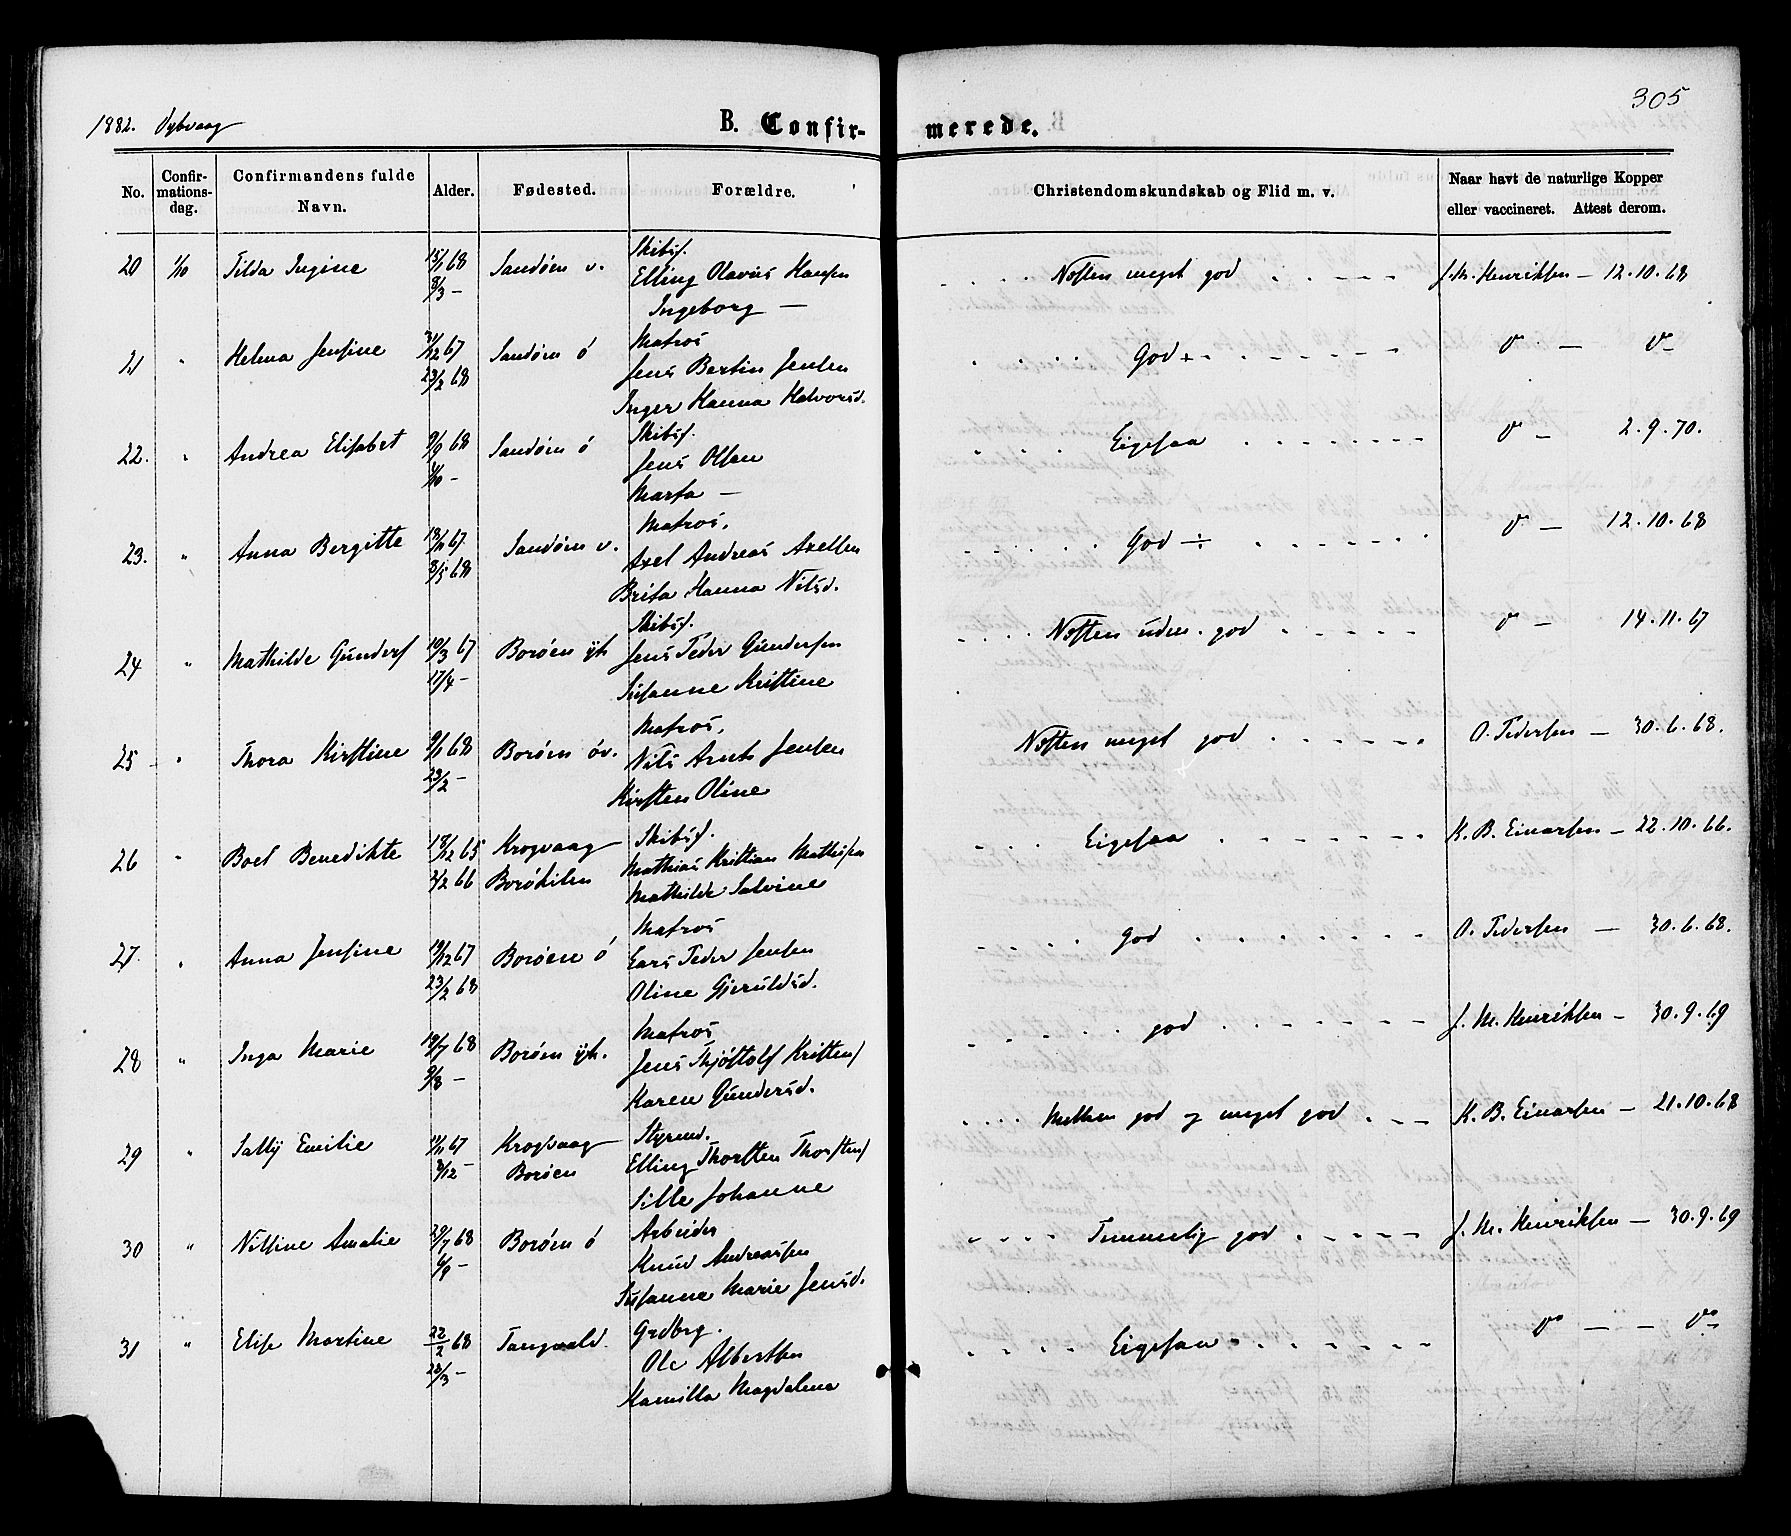 305
1882. Dybvaag
B. Confir-merede.
No. | Confir-mations-dag. | Confirmandens fulde Navn. | Alder. | Fødested. | Forældre. | Christendomskundskab og Flid m. v. | Naar havt de naturlige Kopper eller vaccineret. Attest derom.
20 1/10 Tilda Ingine 15/1 68 Sandøen v. Skibsf.
8/3 – Elling Olavus Hansen Næsten meget god J. M. Henriksen – 12.10.68
Ingeborg —
21 " Helena Jensine 31/12 67 Sandøen ø Matros
23/2 68 Jens Bertin Jensen God + v – v –
Inger Hanna Halvorsd.
22. " Andrea Elisabet 9/9 68 Sandøen ø Skibsf.
1/10 – Jens Olsen Eigesaa v – 2.9.70.
Marta —
23. " Anna Bergitte 18/11 67 Sandøen v. Matros.
3/5 68 Axel Andreas Axelsen God ÷ v – 12.10.68
Brita Hanna Nilsd.
24 " Mathilde Gunders 10/3 67 Borøen yt. Skibsf.
17/4 – Jens Peder Gundersen Næsten udm. god v – 14.11.67
Susanne Kristine
25 " Thora Kirstine 9/1 68 Borøen øv. Matros.
23/2 – Nils Arnt Jensen Næsten meget god O. Pedersen – 30.6.68.
Kirsten Oline
26 " Boel Benedikte 18/12 65 Krogvaag Skibsf.
2/2 66 Borøkilen Mathias Kristian Mathisen Eigesaa K. B. Einarsen – 22.10.66.
Mathilde Salvine
27. " Anna Jensine 19/12 67 Borøen ø Matros
23/2 68 Lars Peder Jensen god O. Pedersen – 30.6.68.
Oline Gjeruldsd.
28 " Inga Marie 19/7 68 Borøen yt. Matros
9/8 – Jens Thjøttolf Kristens god J. M. Henriksen – 30.9.69
Karen Gundersd.
29 " Sally Emilie 11/11 67 Krogvaag Styrmd.
8/12 – Borøen Elling Thorsten Thorstens Mellem god og meget god K. B. Einarsen – 21.10.68
Sille Johanne
30 " Nilsine Amalie 29/7 68 Borøen ø Arbeider
6/9 – Knud Andreassen Temmelig god J. M. Henriksen – 30.9.69
Susanne Marie Jensd.
31 " Elise Martine 22/2 68 Tangvald. Grdbrg.
22/3 – Ole Albertsen Eigesaa v – – v –
Kamilla Magdalena